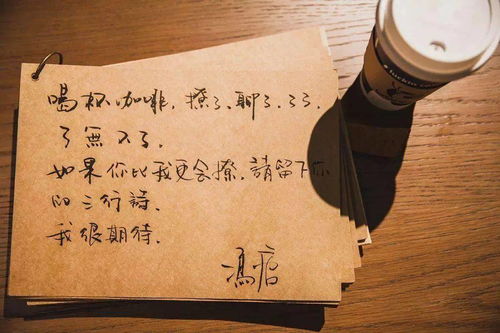 喝杯咖啡，撩了、聊了、了了、
了無
如果你比我更会撩，請留下你
的三行詩.
我很期待.
馮唐